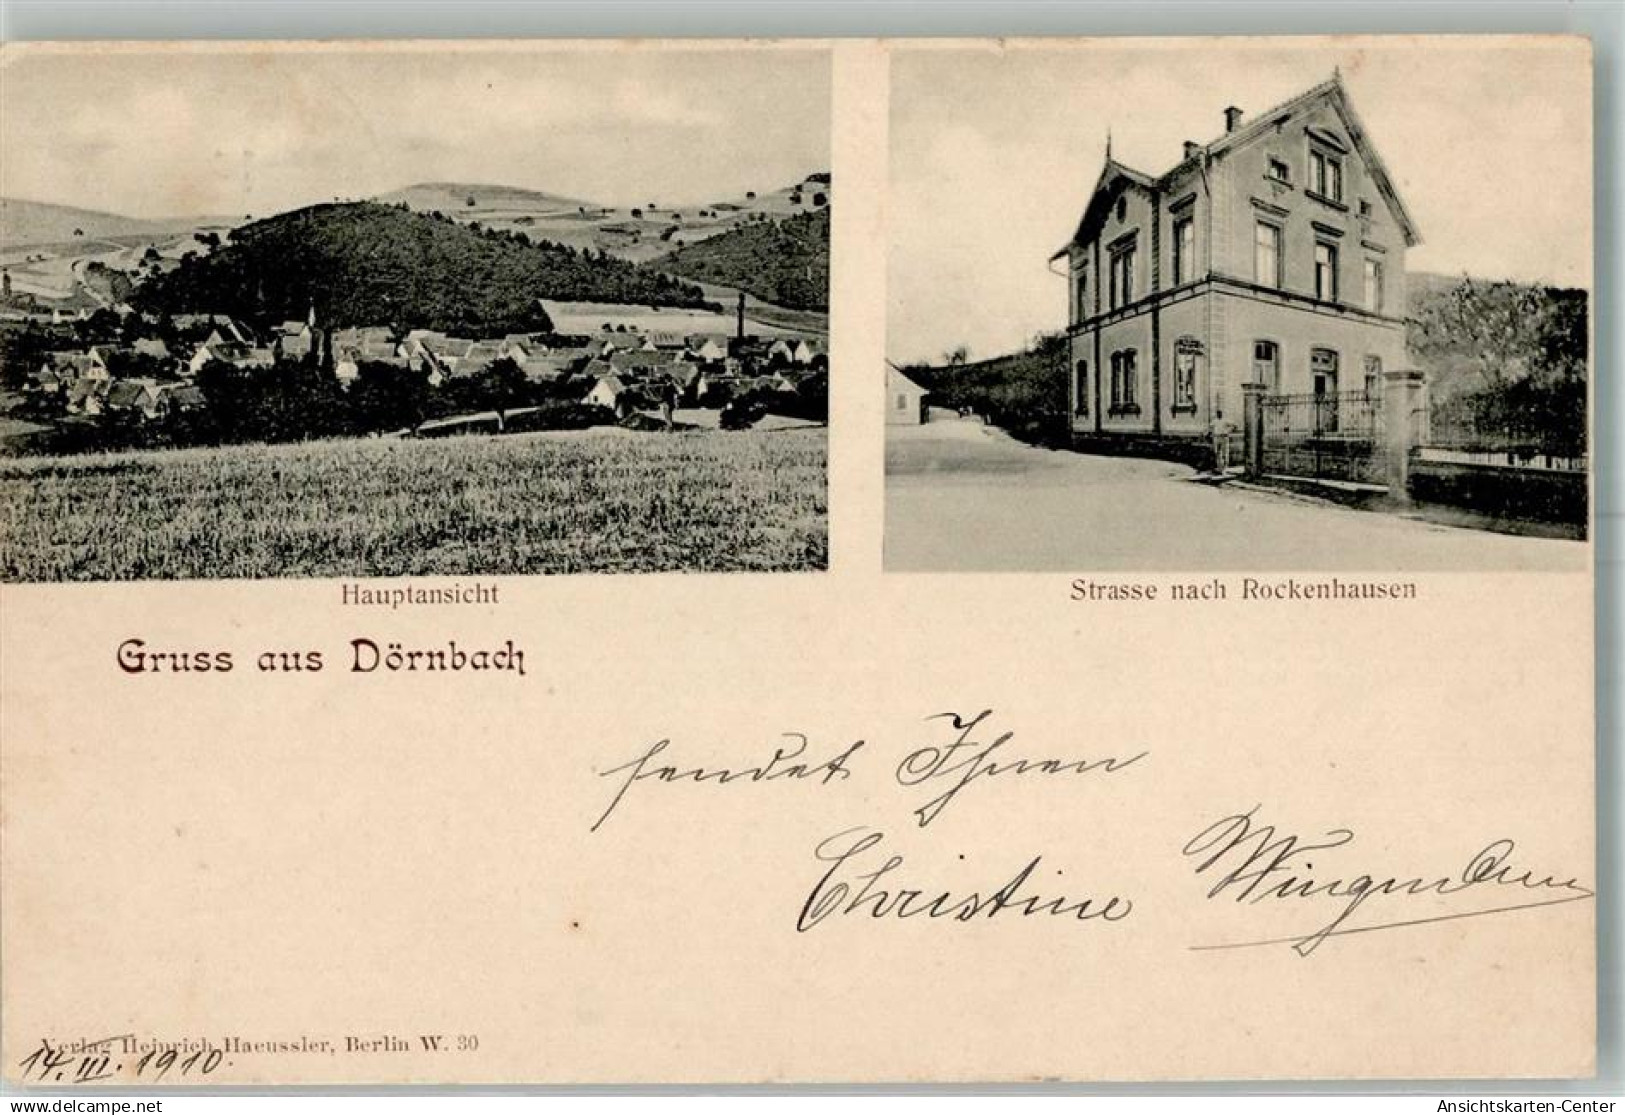 Hauptansicht
Strasse nach Rockenhausen
Gruss aus Dörnbach
sendet Ihnen
Christine
Verlag Heinrich Haeussler, Berlin W. 30
14. III. 1910.
delcampe.net
Ansichtskarten-Center